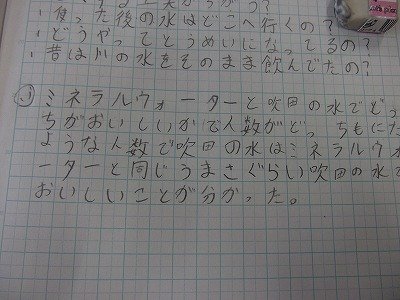 ・使った後の水はどこへ行くの？
・どうやってとうめいになってるの？
・昔は川の水をそのまま飲んでたの？
ミネラルウォーターと吹田の水でどっ
ちがおいしいかで人数がどっちもにた
ような人数で吹田の水はミネラルウォ
ーターと同じうまさぐらい吹田の水で
おいしいことが分かった。